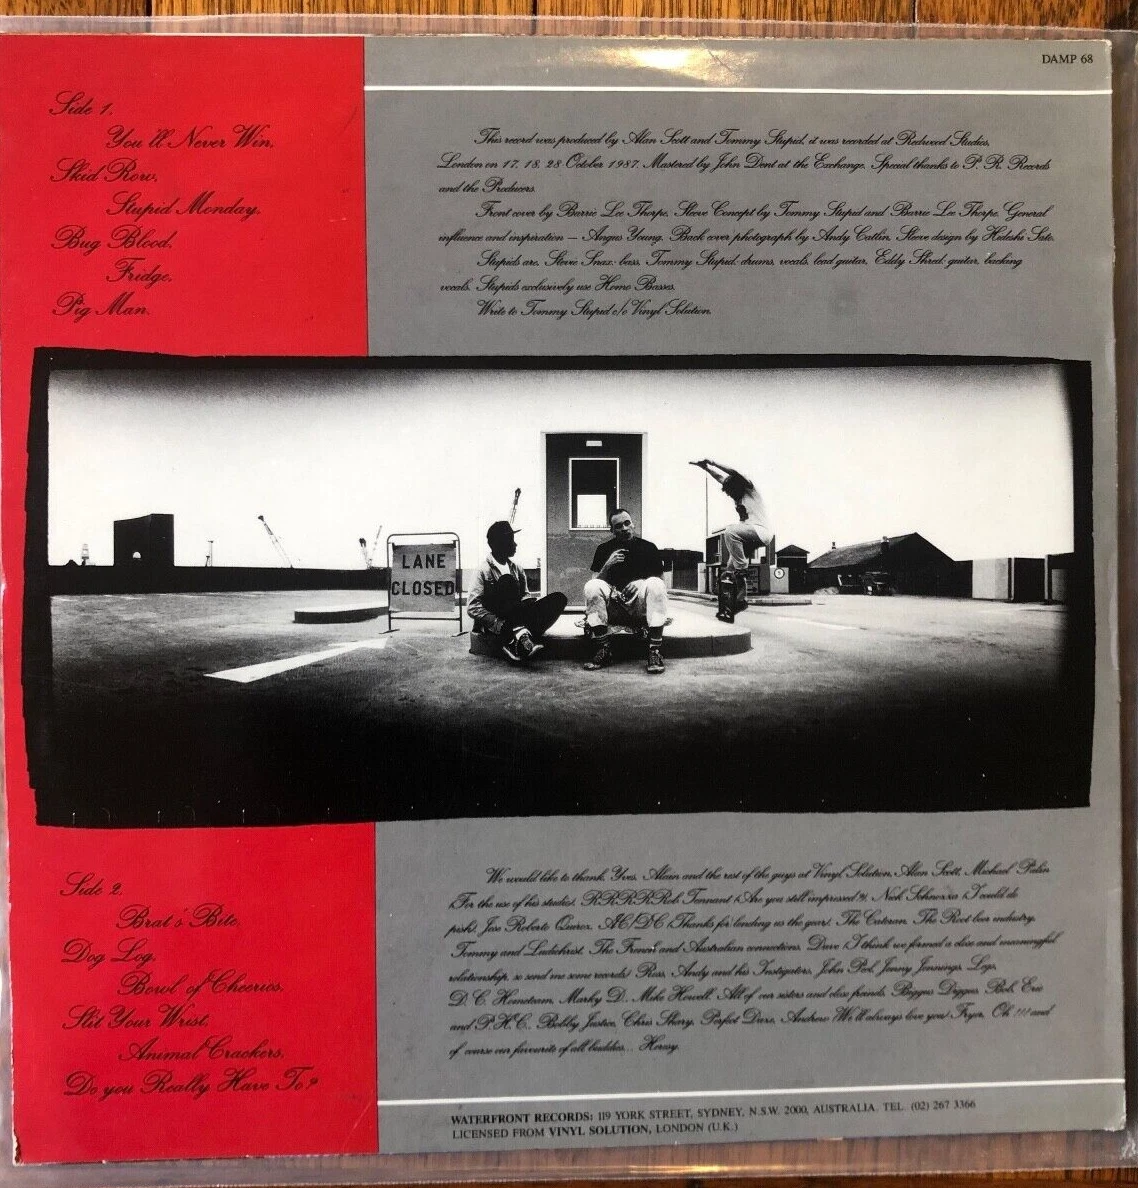 DAMP 68
Side 1.
You'll Never Win.
Skid Row.
Stupid Monday.
Bug Blood.
Fridge.
Pig Man.
This record was produced by Alan Scott and Tommy Stupid, it was recorded at Redwood Studios,
London on 17, 18, 28 October 1987. Mastered by John Dent at the Exchange. Special thanks to P. R. Records
and the Producers.
Front cover by Barrie Lee Thorpe. Sleeve Concept by Tommy Stupid and Barrie Lee Thorpe. General
influence and inspiration — Angus Young. Back cover photograph by Andy Catlin. Sleeve design by Hideshi Sato.
Stupids are. Stevie Snax: bass, Tommy Stupid: drums, vocals, lead guitar, Eddy Shred: guitar, backing
vocals. Stupids exclusively use Homo Basses.
Write to Tommy Stupid c/o Vinyl Solution.
LANE
CLOSED
Side 2.
Brat's Bite.
Dog Log.
Bowl of Cheerios.
Slit Your Wrist.
Animal Crackers.
Do you Really Have To?
We would like to thank, Yves, Alain and the rest of the guys at Vinyl Solution, Alan Scott, Michael Palin
(For the use of his studio), RRRRRRob Tennant (Are you still impressed?), Nick (I could do
Jose Roberto AC/DC (Thanks for lending us the gear) The Cateran, The Root beer industry,
Tommy and Ludichrist, The French and Australian connections, Dave (I think we formed a close and meaningful
relationship, so send me some records) Ross, Andy and his Instigators, John Peel, Jenny Jennings, Logs,
D.C. Hometeam, Marky D., Mike Howell, All of our sisters and close friends, Biggus Diggus, Bob, Eric
and P.H.C., Bobby Justice, Chris Sharp, Perfect Daze, Andrew (We'll always love you) Fryer, Oh!!! and
of course our favourite of all buddies... Heresy.
WATERFRONT RECORDS: 119 YORK STREET, SYDNEY, N.S.W. 2000, AUSTRALIA. TEL. (02) 267 3366
LICENSED FROM VINYL SOLUTION, LONDON (U.K.)